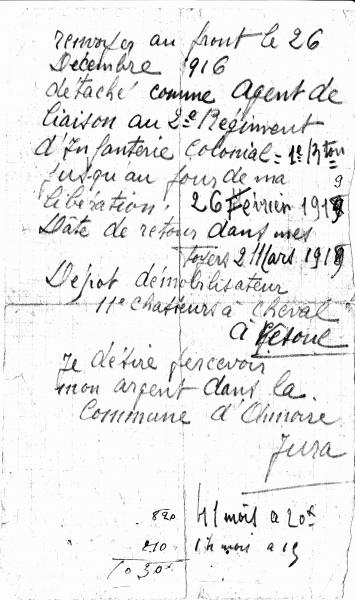 renvoyer au front le 26
Décembre 1916
détaché comme Agent de
liaison au 2e Régiment
d'Infanterie Colonial = 1e/3 ton
jusqu au jour de ma
libération. 26 Février 1919
Dâte de retour dans mes
foyers 2 Mars 1919
Dépot démobilisateur
11e Chasseurs à Cheval
à Vesoul
Je désire percevoir
mon argent dans la
Commune d'
Jura
820 41 mois a 20f
210 14 mois a 15
1030